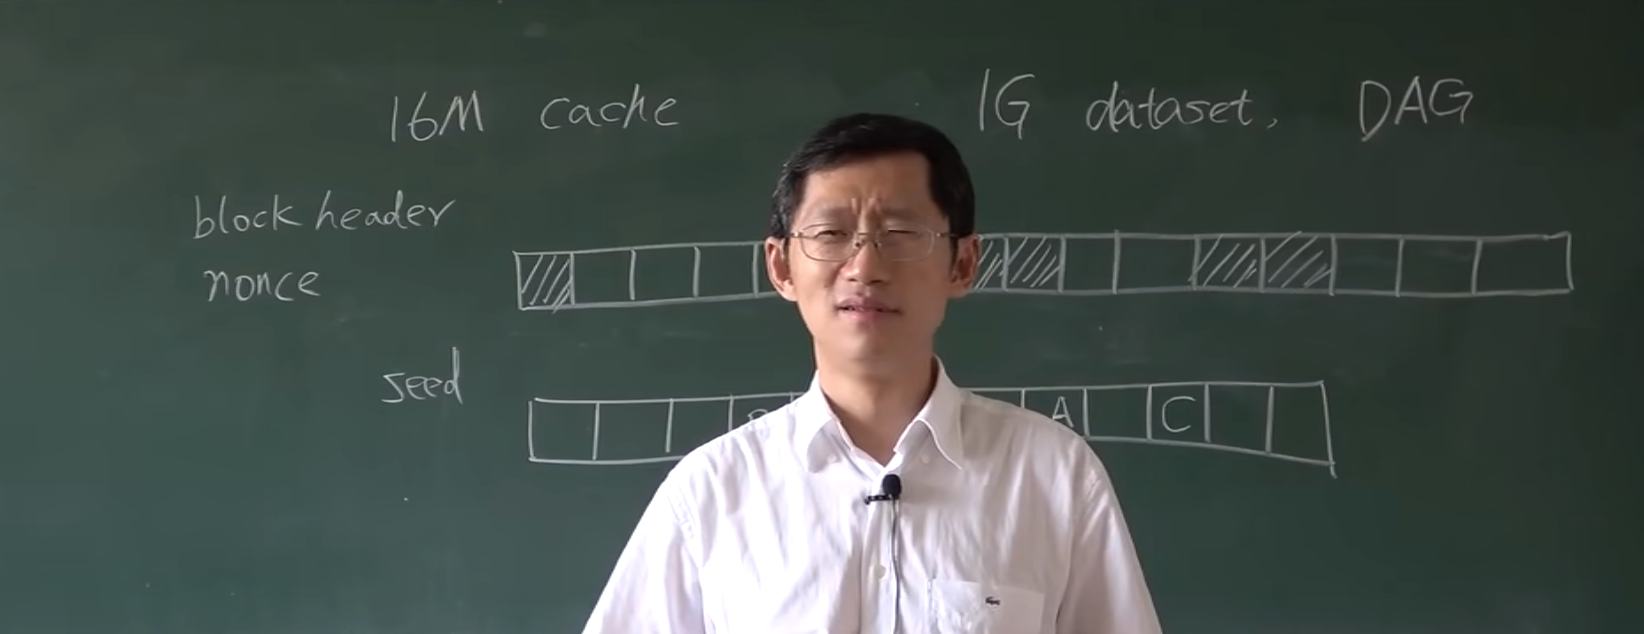 16M cache 1G dataset, DAG
block header
nonce
seed
A C